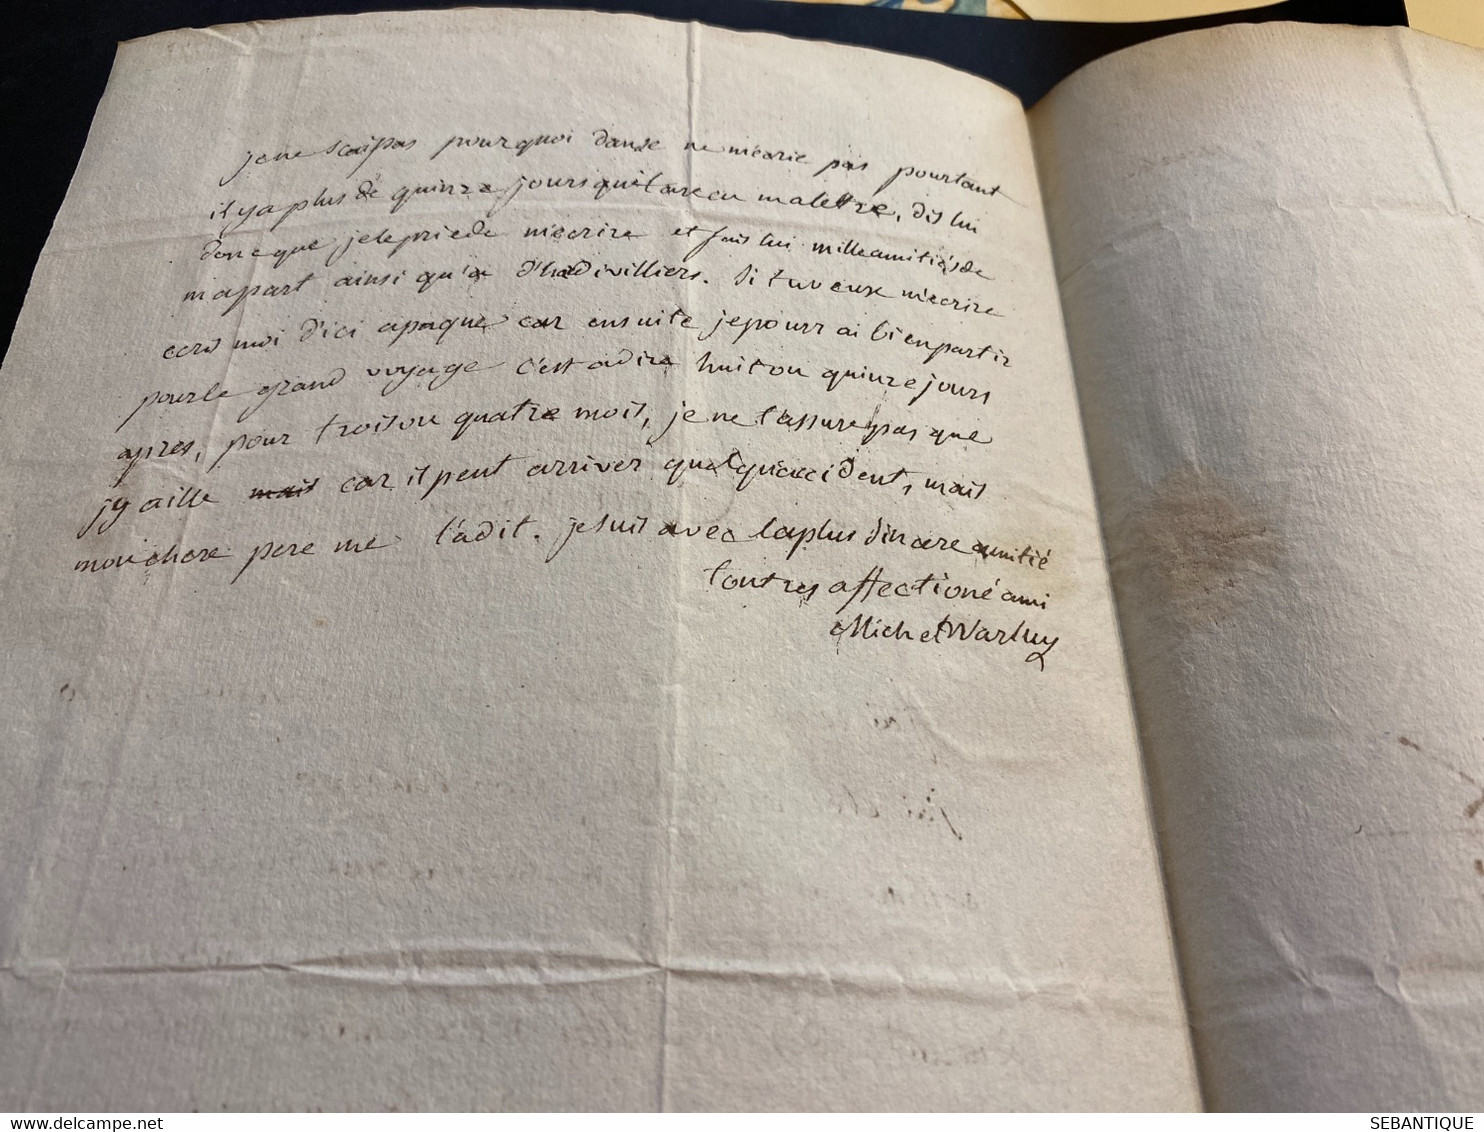 je ne scai pas pourquoi danse ne m'ecrie pas pourtant
il y a plus de quinze jours qu'il a recu ma lettre, dis lui
donc que je le prie de m'ecrire et fais lui mille amitiés de
ma part ainsi qu'a d'hadivilliers. Si tu veux m'ecrire
ecris moi d'ici a paque car ensuite je pourrai bien partir
pour le grand voyage c'est a dire huit ou quinze jours
apres, pour trois ou quatre mois, je ne t'assure pas que
j'y aille mais car il peut arriver quelqu'accident, mais
mon chere pere me l'a dit. je suis avec la plus sincere amitié
ton tres affectioné ami
Michel Warluy
SEBANTIQUE